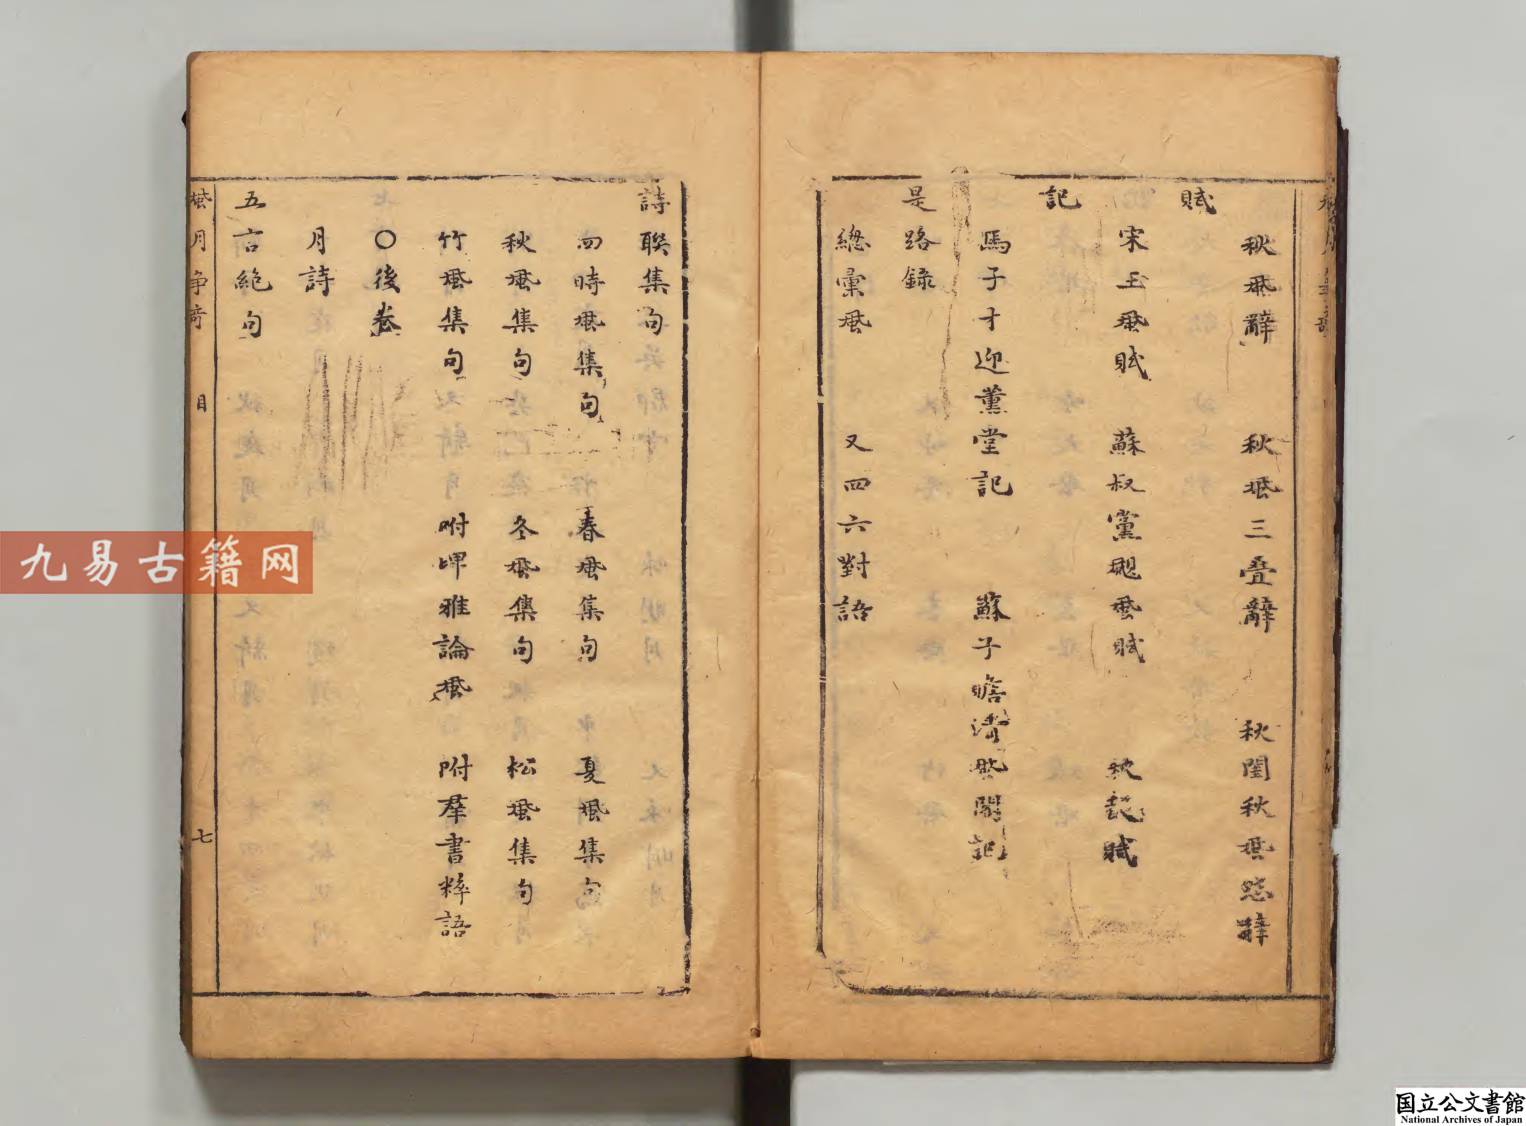 秋風辭　秋風三疊辭　秋閨秋風怨辭
賦
宋玉風賦　蘇叔黨颶風賦　秋聲賦
記
馬子才迎薰堂記　蘇子瞻清風閣記
是路録
總彙風　又四六對語
詩聯集句
四時風集句　春風集句　夏風集句
秋風集句　冬風集句　松風集句
竹風集句　附埤雅論風　附羣書粹語
〇後卷
月詩
五言絶句
風月争奇　目　七
九易古籍网
国立公文書館
National Archives of Japan